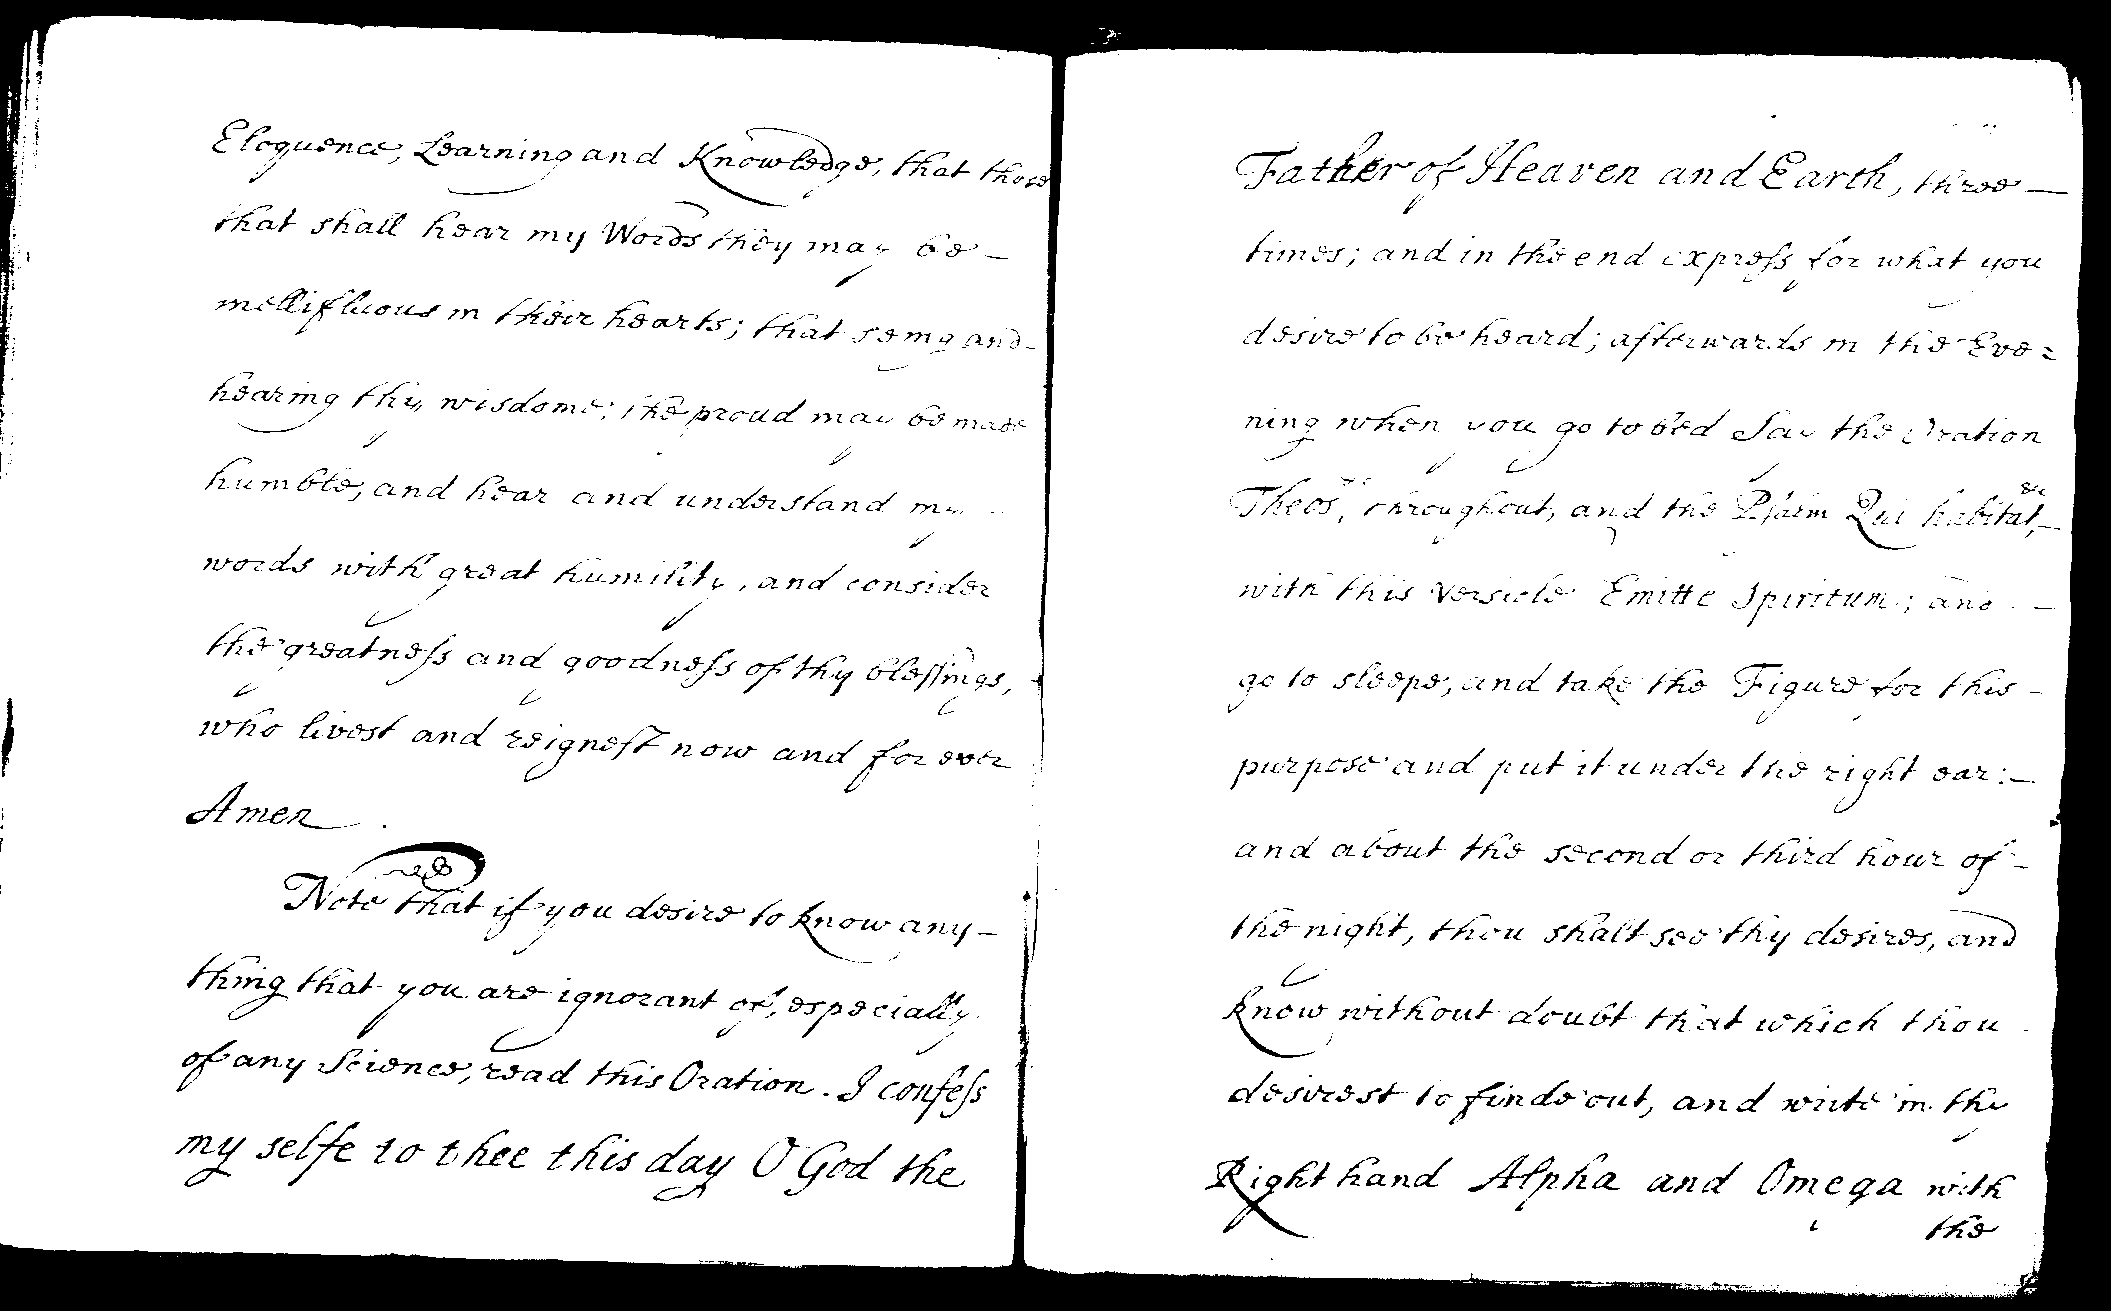 Eloquence, Learning and Knowledge, that those
that shall hear my Words they may be –
mellifluous in their hearts; that seing and –
hearing thy wisdome; the proud may be made
humble, and hear and understand my –
words with great humility, and consider
the greatneſs and goodneſs of thy bleſsings,
who livest and reigneſt now and for ever
Amen.
Note that if you desire to know any –
thing that you are ignorant of, especially
of any Science, read this Oration. I confeſs
my selfe to thee this day O God the
Father of Heaven and Earth, three –
times; and in the end expreſs for what you
desire to be heard; afterwards in the Eve=
ning when you go to bed Say the Oration
Theos, throughout, and the Psalm Qui habitat, &c –
with this versicle Emitte Spiritum; and –
go to sleepe, and take the Figure for this –
purpose and put it under the right ear: –
and about the second or third hour of –
the night, thou shalt see thy desires, and
know without doubt that which thou
desirest to finde out, and write in thy
Right hand Alpha and Omega with
the